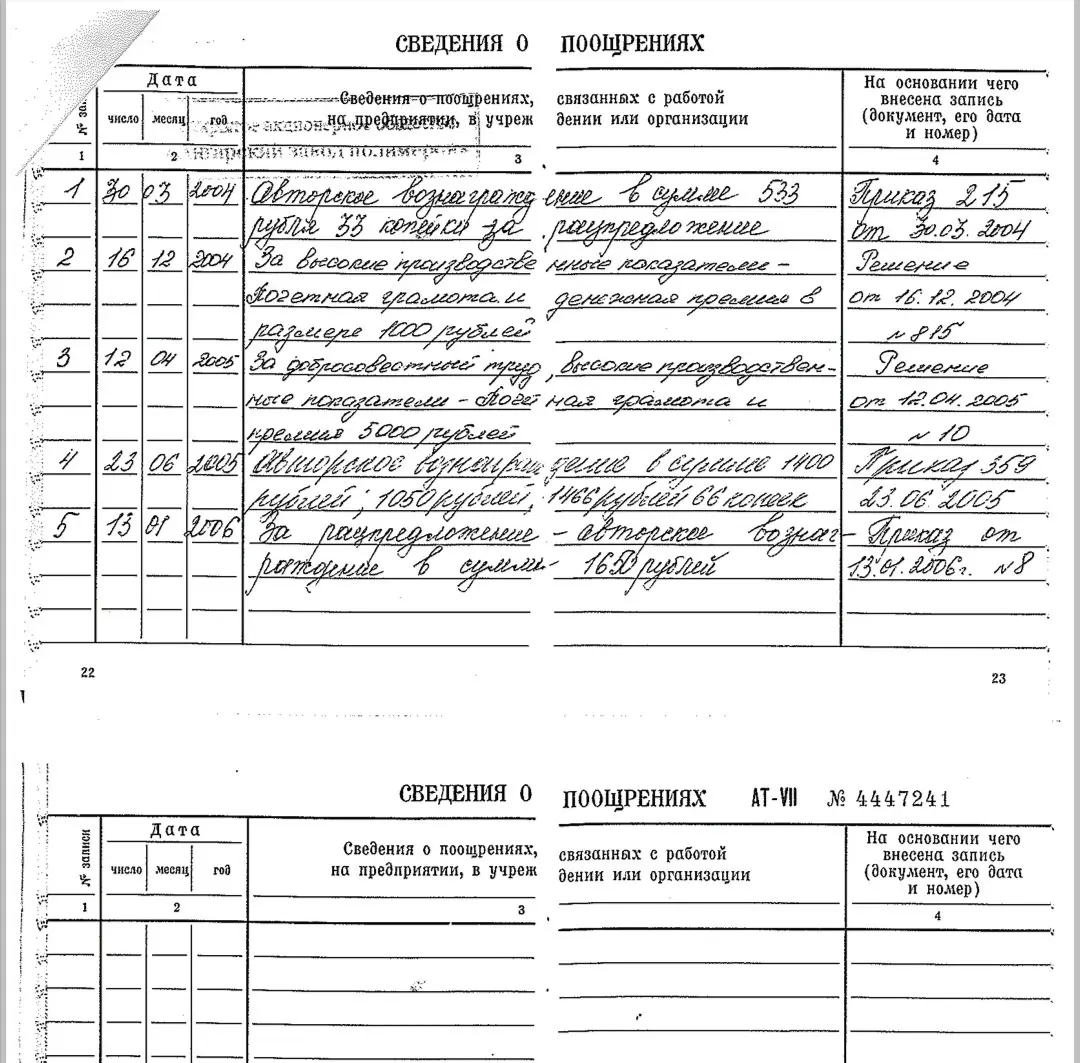 СВЕДЕНИЯ О ПООЩРЕНИЯХ
№ за
Дата
число месяц год
Сведения о поощрениях, связанных с работой
на предприятии, в учреждении или организации
На основании чего
внесена запись
(документ, его дата
и номер)
акционерное общество
завод полимеров
1 2 3 4
1 30 03 2004 Авторское вознаграждение в сумме 533 Приказ 215
рубля 33 копейки за рацпредложение от 30.03.2004
2 16 12 2004 За высокие производственные показатели – Решение
Почетная грамота и денежная премия в от 16.12.2004
размере 1000 рублей № 815
3 12 04 2005 За добросовестный труд, высокие производствен- Решение
ные показатели – Почетная грамота и от 12.04.2005
премия 5000 рублей № 10
4 23 06 2005 Авторское вознаграждение в сумме 1400 Приказ 359
рублей; 1050 рублей; 1466 рублей 66 копеек 23.06.2005
5 13 01 2006 За рацпредложение – авторское вознаг- Приказ от
рождение в сумме – 1650 рублей 13.01.2006г. №8
22 23
СВЕДЕНИЯ О ПООЩРЕНИЯХ АТ-VII № 4447241
№ записи
Дата
число месяц год
Сведения о поощрениях, связанных с работой
на предприятии, в учреждении или организации
На основании чего
внесена запись
(документ, его дата
и номер)
1 2 3 4